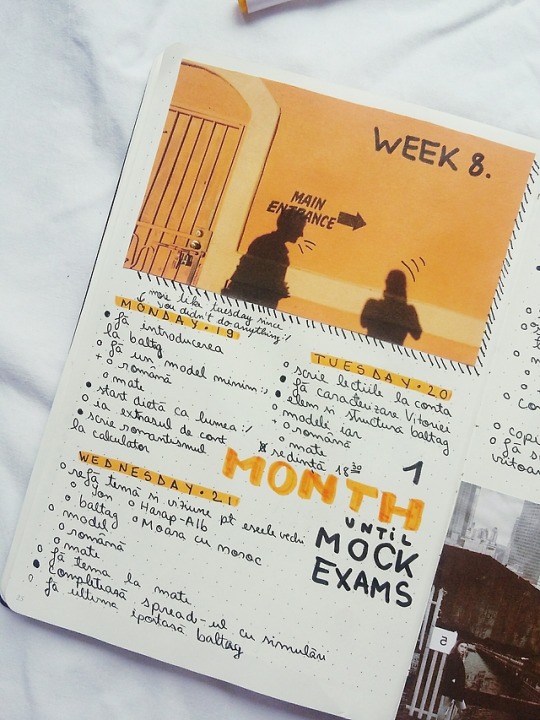 WEEK 8.
MAIN
ENTRANCE
more like tuesday since
you didn't do anything :/
MONDAY • 19
• fă introducerea
la baltag
o fă un model minim :,)
+ o română
o mate
• start dietă ca lumea :/
o ia extrasul de cont
• scrie romantismul
la calculator
TUESDAY • 20
o scrie lecțiile la conta
• fă caracterizare Vitoriei
• elem și structură baltag
o modele iar
+ o română
o mate
ședință 18 30
WEDNESDAY • 21
o refă temă și viziune pt eseele vechi
o Ion o Harap-Alb
o baltag o Moara cu noroc
o model
o română
o mate
o fă tema la mate
• completează spread-ul cu simulări
o fă ultima ipostază baltag
1
MONTH
UNTIL
MOCK
EXAMS
o copi
o fă
viitoar
5